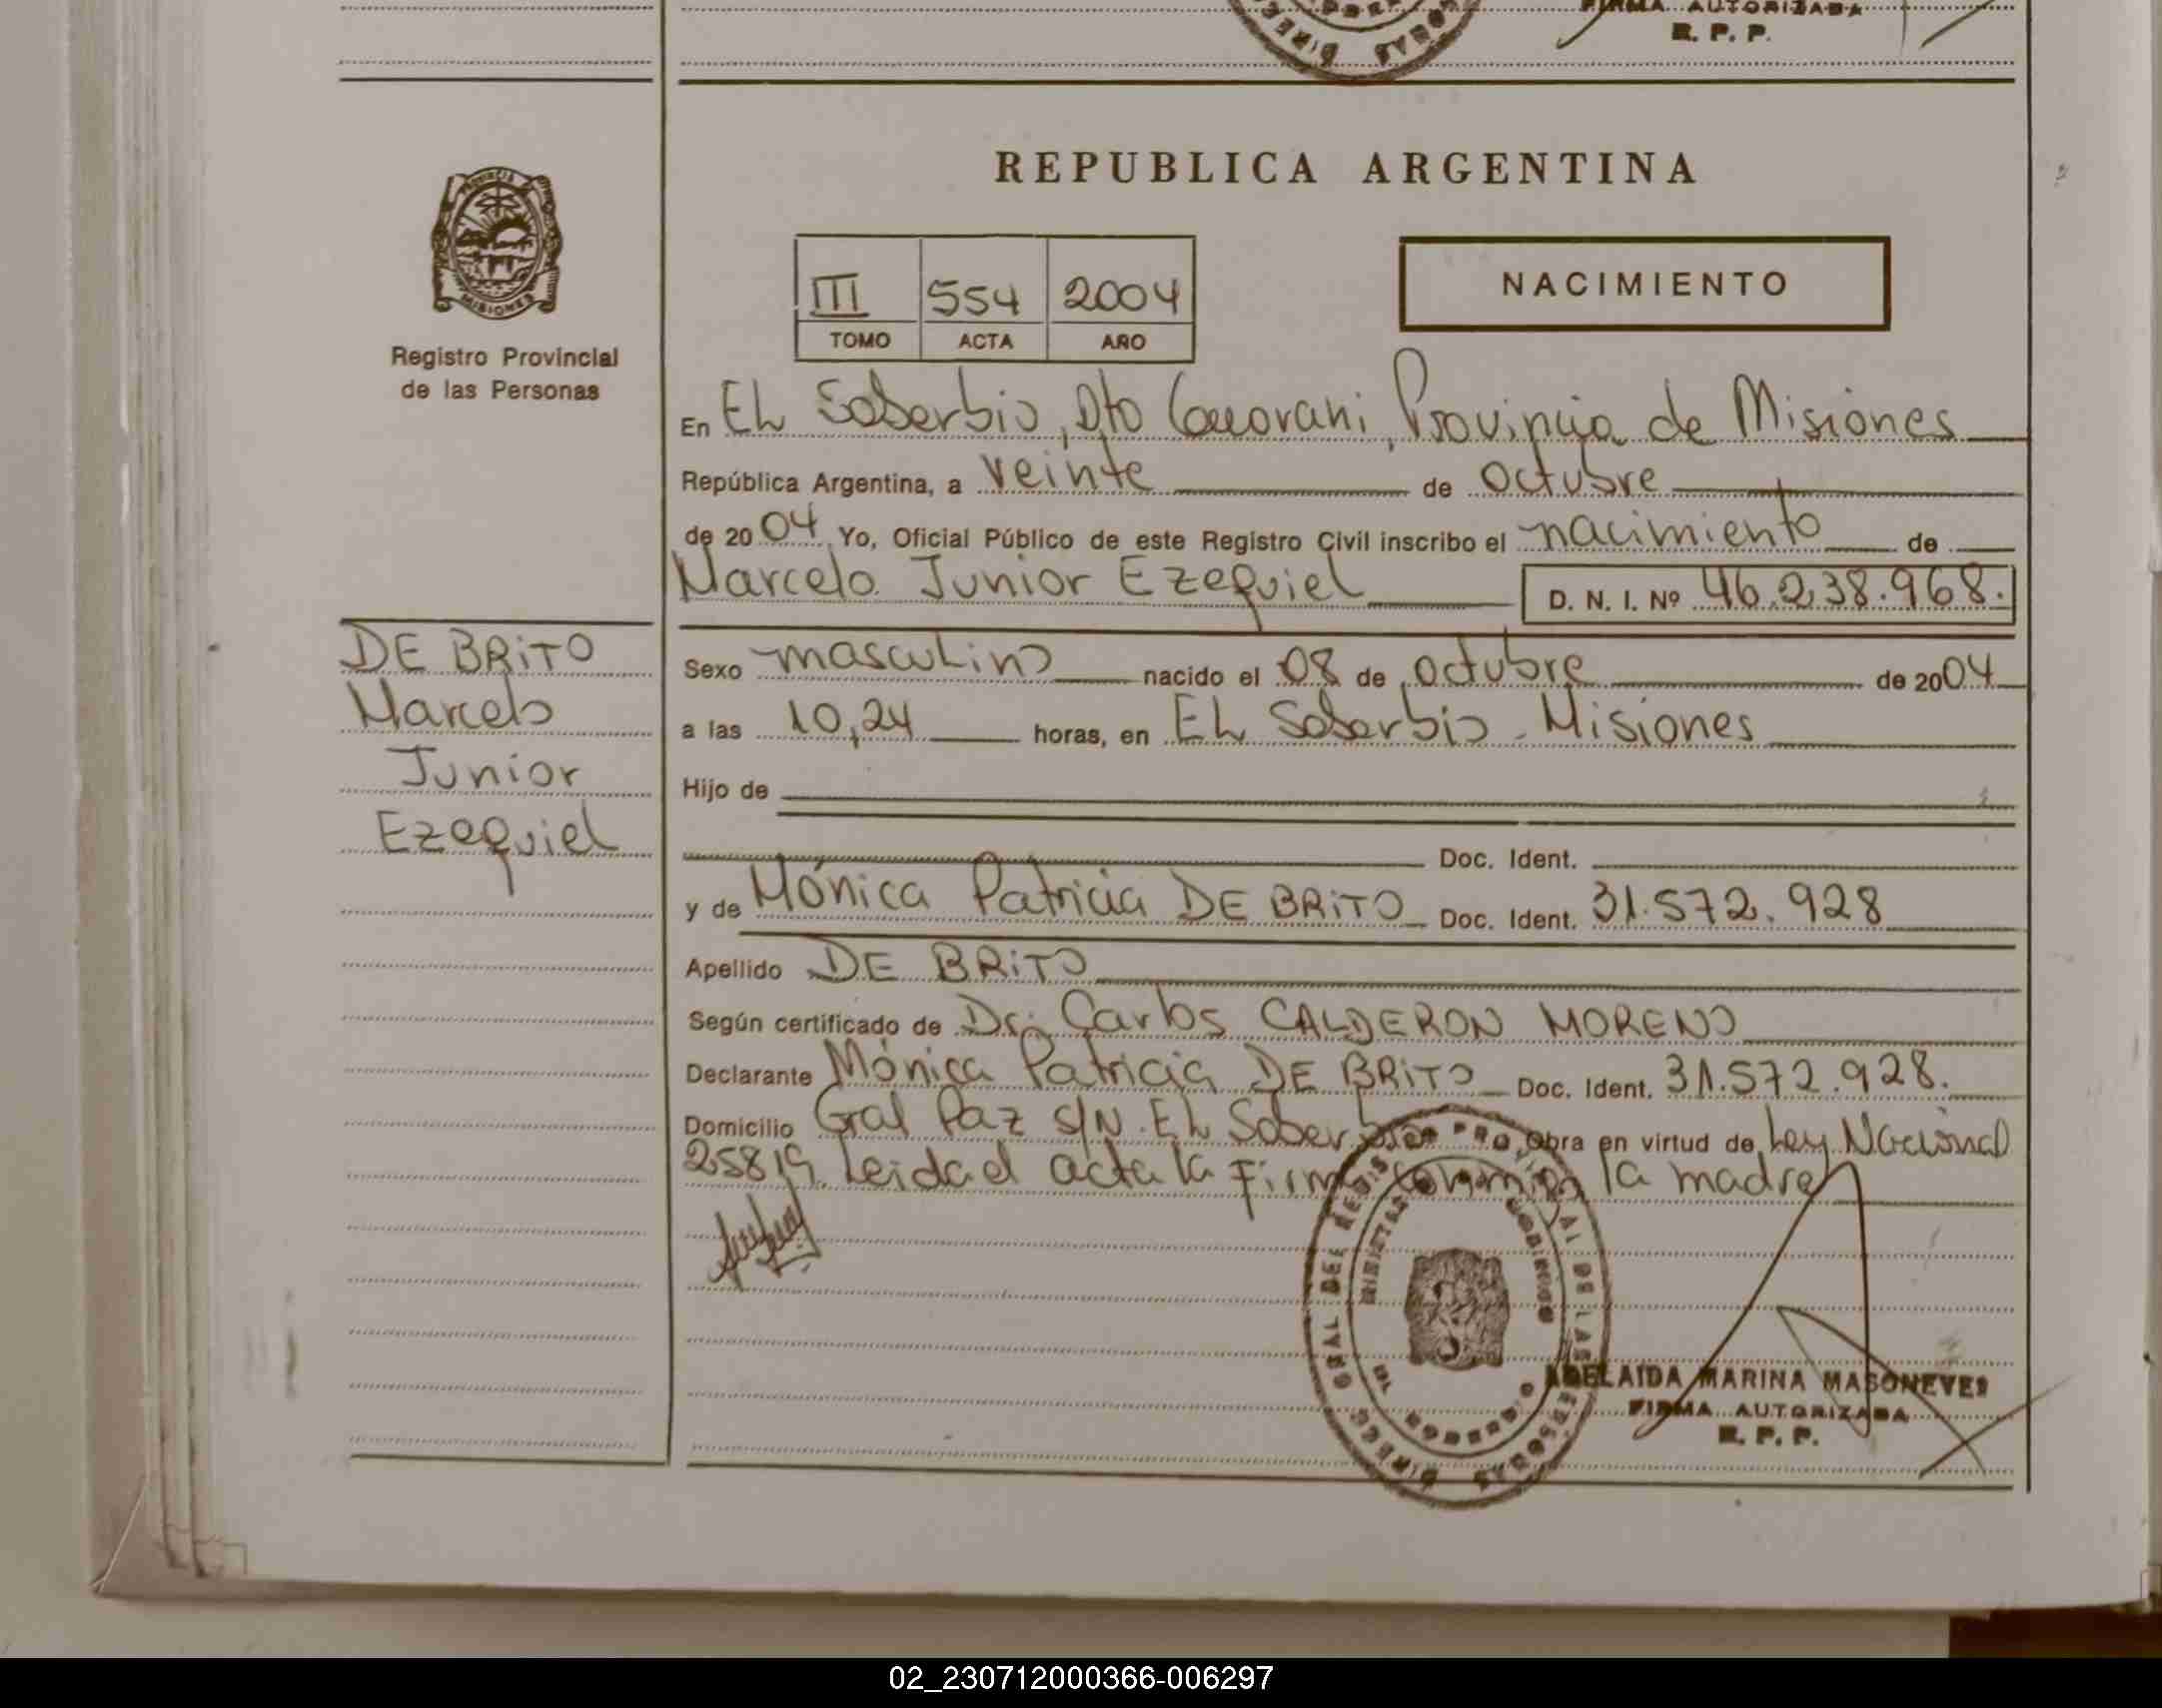 FIRMA AUTORIZADA
R. P. P.
REPUBLICA ARGENTINA
PROVINCIA
MISIONES
Registro Provincial
de las Personas
III 554 2004
TOMO ACTA AÑO
NACIMIENTO
En EL Soberbio, Dto Guarani, Provincia de Misiones
República Argentina, a veinte de octubre
de 2004 Yo, Oficial Público de este Registro Civil inscribo el nacimiento de
Marcelo Junior Ezequiel D. N. I. Nº 46.238.968.
DE BRITO
Marcelo
Junior
Ezequiel
Sexo masculino nacido el 08 de octubre de 2004
a las 10,24 horas, en EL Soberbio - Misiones
Hijo de
Doc. Ident.
y de Mónica Patricia DE BRITO Doc. Ident. 31.572.928
Apellido DE BRITO
Según certificado de Dr. Carlos CALDERON MORENO
Declarante Mónica Patricia DE BRITO Doc. Ident. 31.572.928.
Domicilio Gral Paz S/N. EL Soberbio Obra en virtud de Ley Nacional
25819. Leida el acta la firma conmigo la madre
ADELAIDA MARINA MASONEVES
FIRMA AUTORIZADA
R. P. P.
02_230712000366-006297